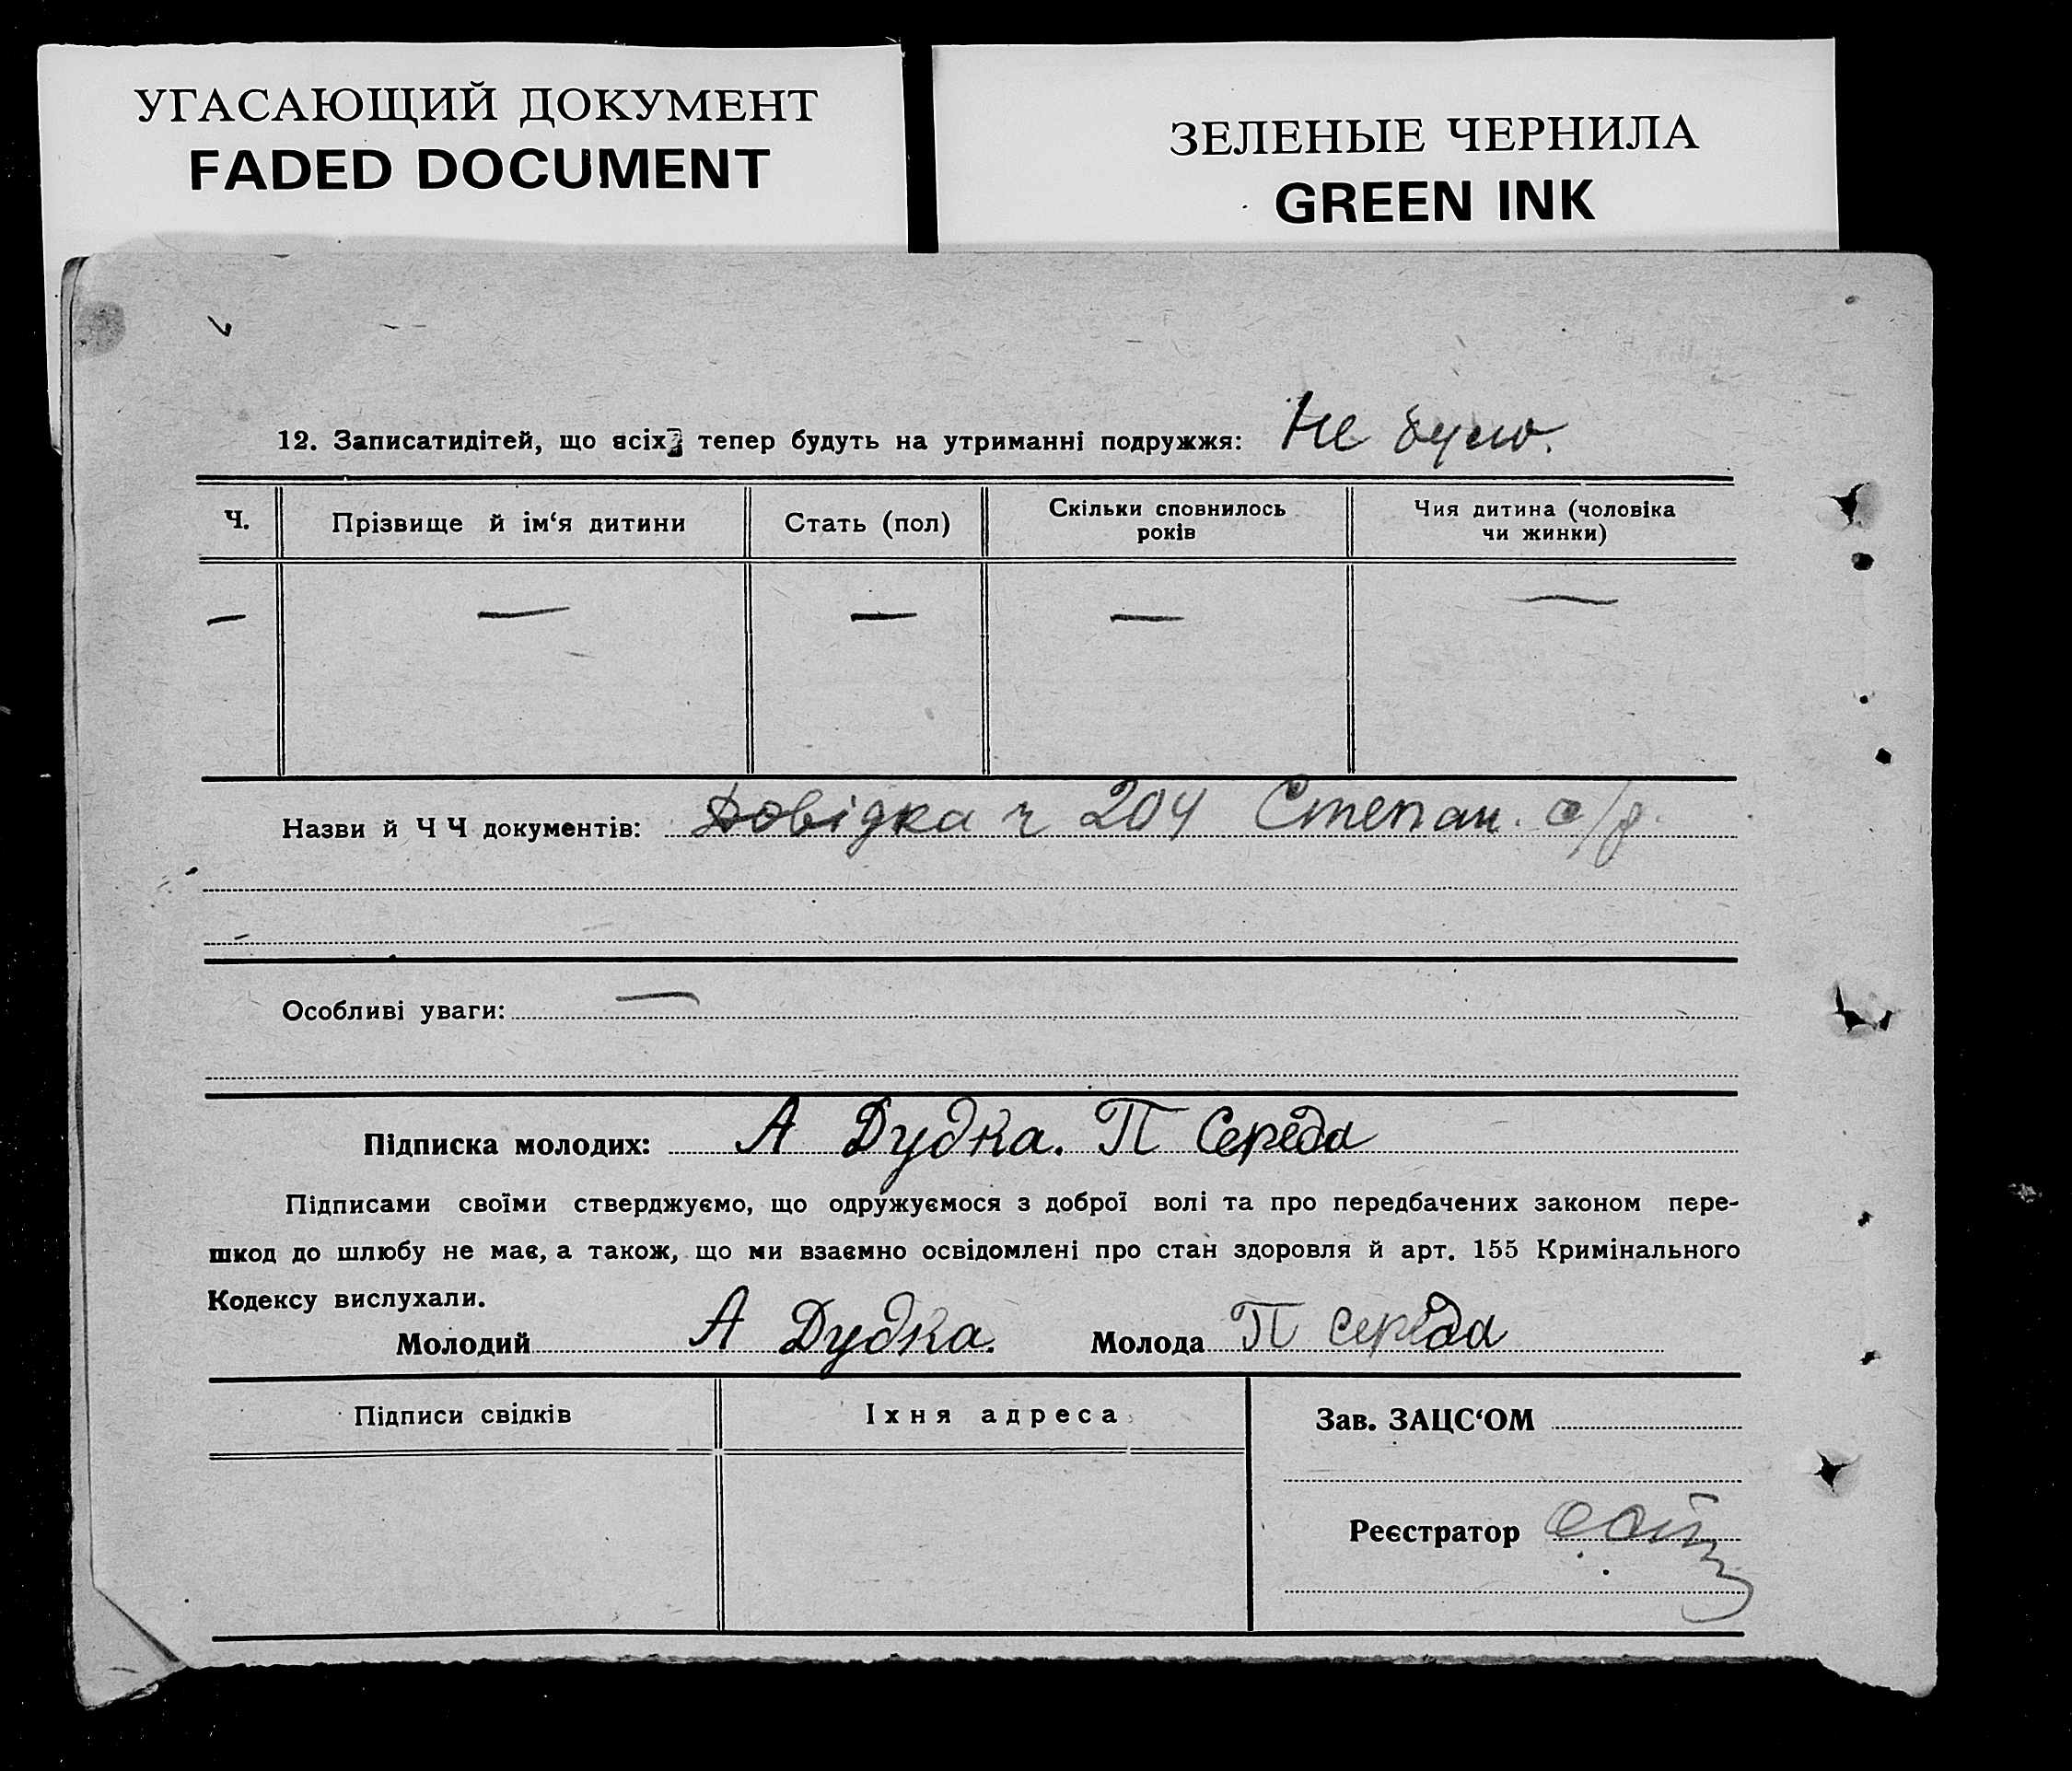 УГАСАЮЩИЙ ДОКУМЕНТ
FADED DOCUMENT
ЗЕЛЕНЫЕ ЧЕРНИЛА
GREEN INK
12. Записатидітей, що всіх тепер будуть на утриманні подружжя: Не було.
Ч. Прізвище й ім‘я дитини Стать (пол) Скільки сповнилось років Чия дитина (чоловіка чи жинки)
— — — — —
Назви й Ч Ч документів: Довідка ч 204 Степан. с/р.
Особливі уваги: —
Підписка молодих: А Дудка. П Середа
Підписами своїми стверджуємо, що одружуємося з доброї волі та про передбачених законом пере-
шкод до шлюбу не має, а також, що ми взаємно освідомлені про стан здоровля й арт. 155 Кримінального
Кодексу вислухали.
Молодий А Дудка. Молода П Середа
Підписи свідків Іхня адреса Зав. ЗАЦС‘ОМ
Реєстратор